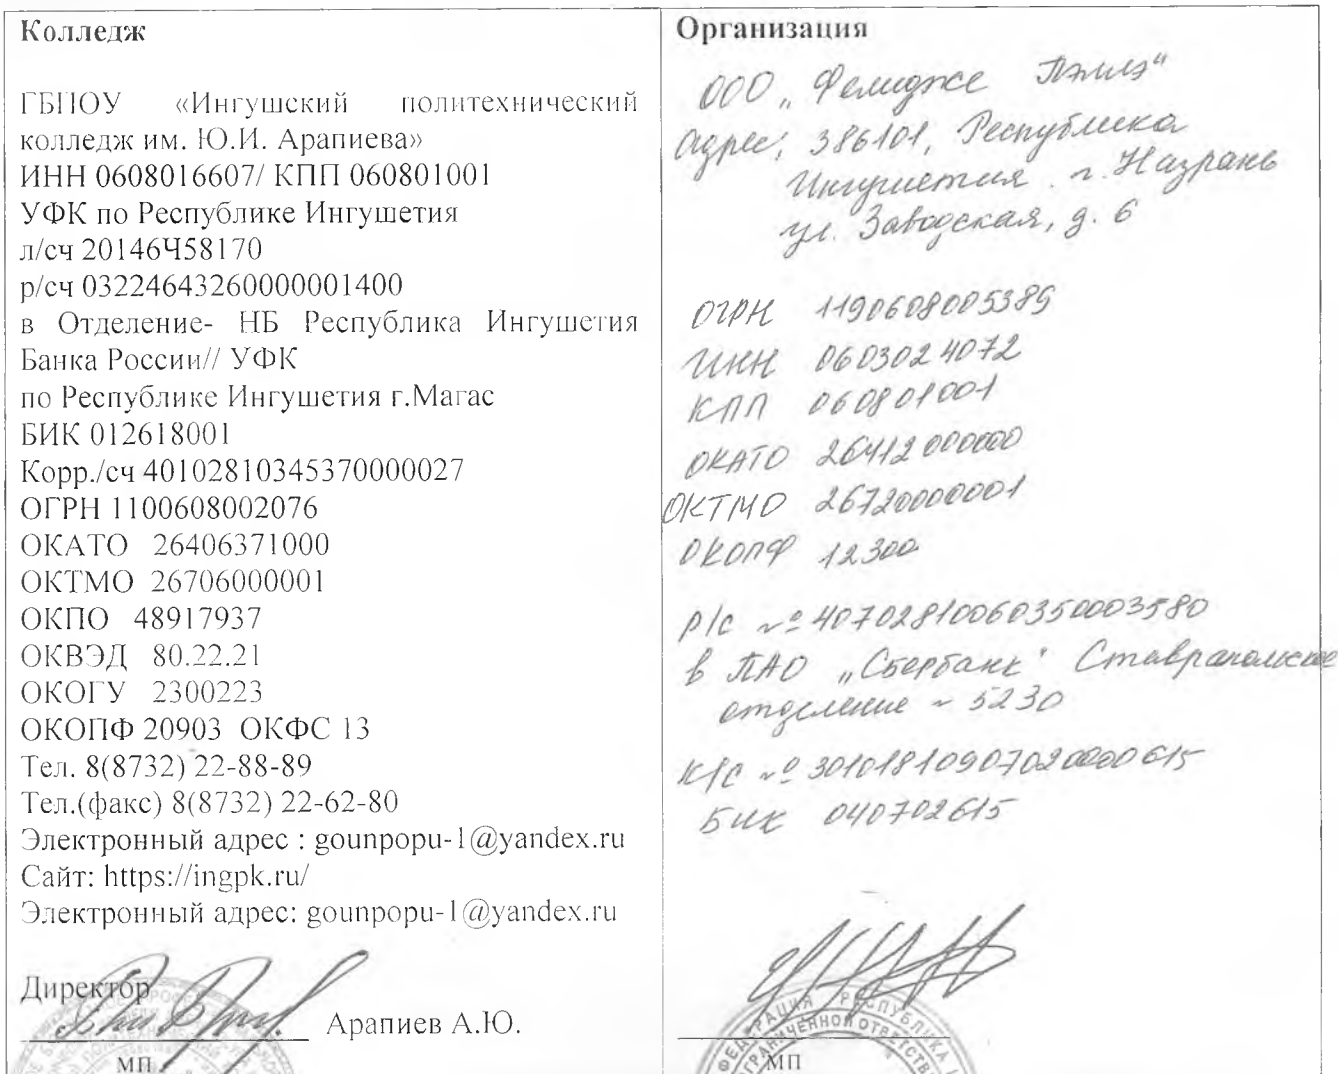 Колледж
ГБПОУ «Ингушский политехнический
колледж им. Ю.И. Арапиева»
ИНН 0608016607/ КПП 060801001
УФК по Республике Ингушетия
л/сч 20146Ч58170
р/сч 03224643260000001400
в Отделение- НБ Республика Ингушетия
Банка России// УФК
по Республике Ингушетия г.Магас
БИК 012618001
Корр./сч 40102810345370000027
ОГРН 1100608002076
ОКАТО 26406371000
ОКТМО 26706000001
ОКПО 48917937
ОКВЭД 80.22.21
ОКОГУ 2300223
ОКОПФ 20903 ОКФС 13
Тел. 8(8732) 22-88-89
Тел.(факс) 8(8732) 22-62-80
Электронный адрес : gounpopu-1@yandex.ru
Сайт: https://ingpk.ru/
Электронный адрес: gounpopu-1@yandex.ru
Директор
Арапиев А.Ю.
МП
Организация
ООО „Фемидже Пэлиэ"
Адрес: 386101, Республика
Ингушетия. г. Назрань
ул. Заводская, д. 6
ОГРН 1190608005389
ИНН 0603024072
КПП 060801001
ОКАТО 26412000000
ОКТМО 26720000001
ОКОПФ 12300
р/с № 40702810060350003580
в ПАО „Сбербанк" Ставрапольское
отделение № 5230
к/с № 30101810907020000615
БИК 040702615
ФЕДЕРАЦИЯ РЕСПУБЛИКА
МП